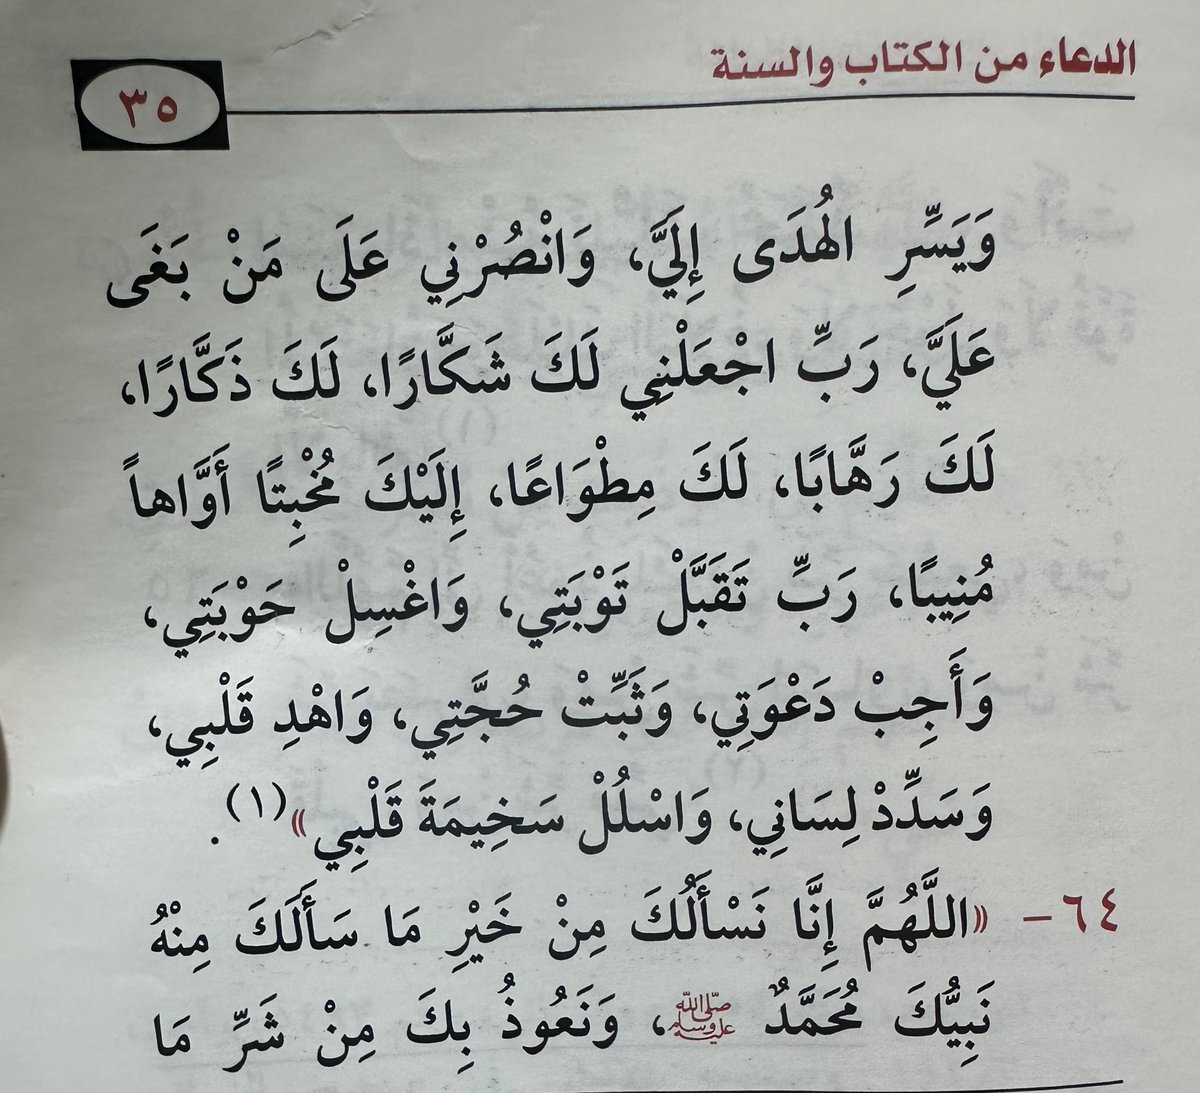 الدعاء من الكتاب والسنة
٣٥
وَيَسِّرِ الهُدَى إِلَيَّ، وَانْصُرْنِي عَلَى مَنْ بَغَى
عَلَيَّ، رَبِّ اجْعَلْنِي لَكَ شَكَّارًا، لَكَ ذَكَّارًا،
لَكَ رَهَّابًا، لَكَ مِطْوَاعًا، إِلَيْكَ مُخْبِتًا أَوَّاهاً
مُنِيبًا، رَبِّ تَقَبَّلْ تَوْبَتِي، وَاغْسِلْ حَوْبَتِي،
وَأَجِبْ دَعْوَتِي، وَثَبِّتْ حُجَّتِي، وَاهْدِ قَلْبِي،
وَسَدِّدْ لِسَانِي، وَاسْلُلْ سَخِيمَةَ قَلْبِي»(١).
٦٤- «اللَّهُمَّ إِنَّا نَسْأَلُكَ مِنْ خَيْرِ مَا سَأَلَكَ مِنْهُ
نَبِيُّكَ مُحَمَّدٌ ﷺ، وَنَعُوذُ بِكَ مِنْ شَرِّ مَا